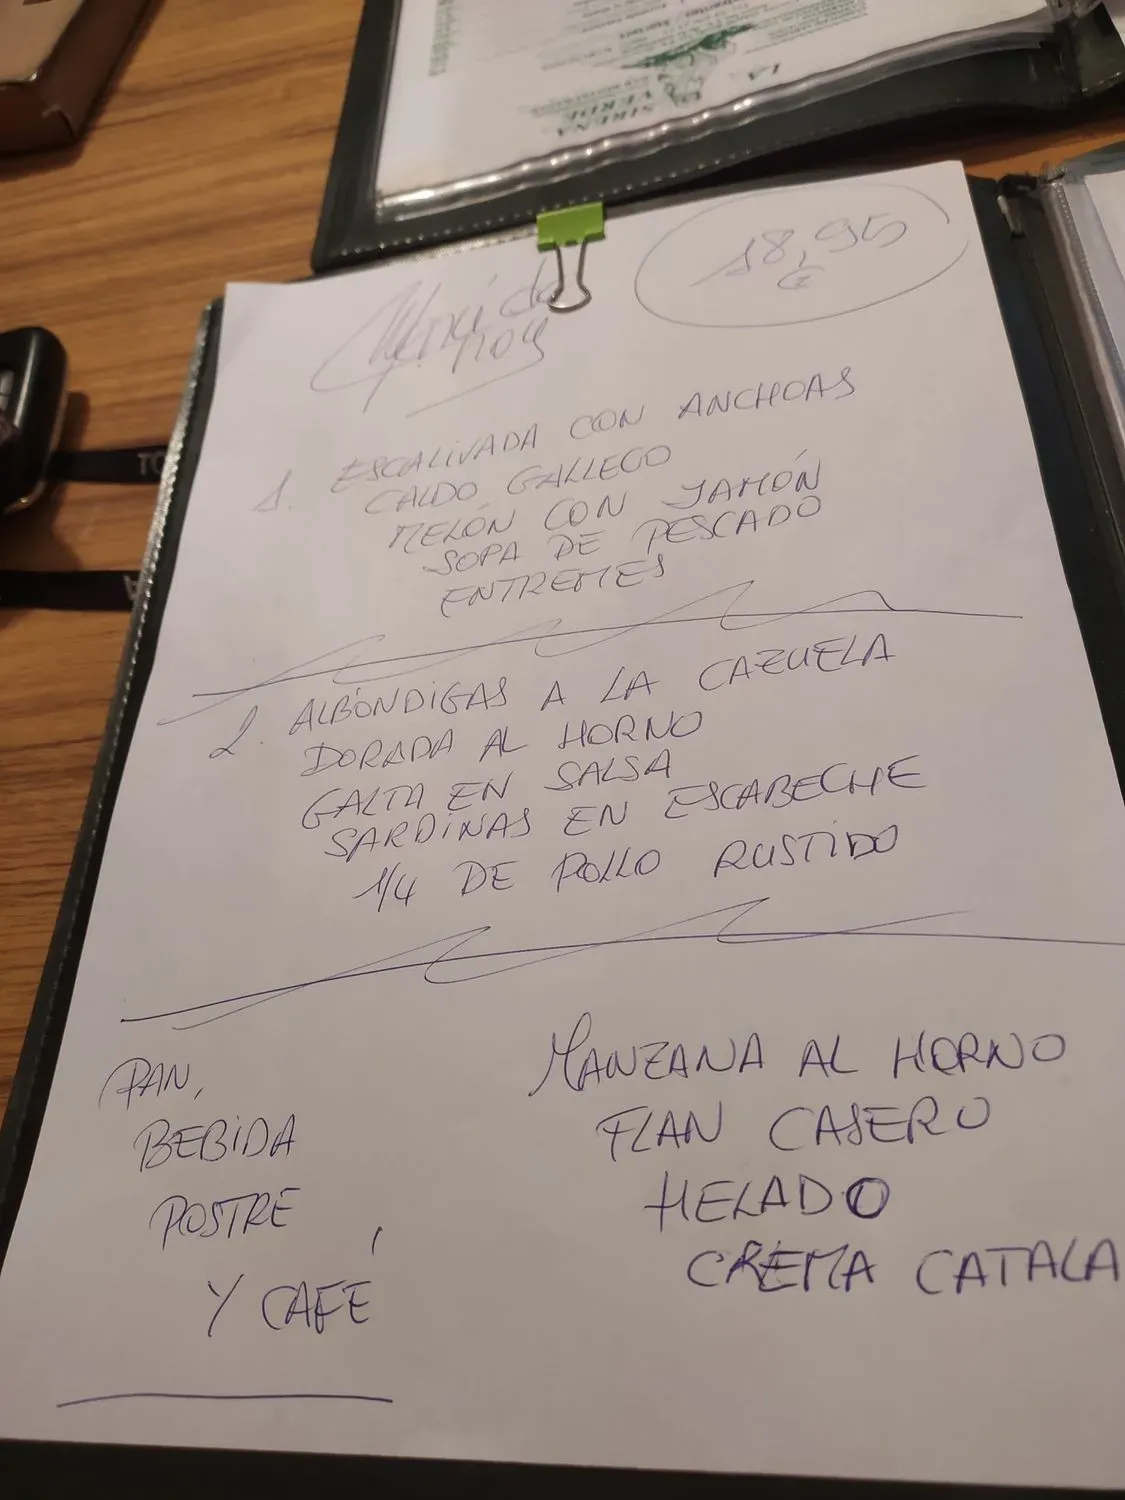 LA
SIRENA
VERDE
Menú de
hoy
18,95
€
1. ESCALIVADA CON ANCHOAS
CALDO GALLEGO
MELÓN CON JAMÓN
SOPA DE PESCADO
ENTREMES
2. ALBÓNDIGAS A LA CAZUELA
DORADA AL HORNO
GALTA EN SALSA
SARDINAS EN ESCABECHE
1/4 DE POLLO RUSTIDO
PAN,
BEBIDA
POSTRE
Y CAFÉ
MANZANA AL HORNO
FLAN CASERO
HELADO
CREMA CATALA